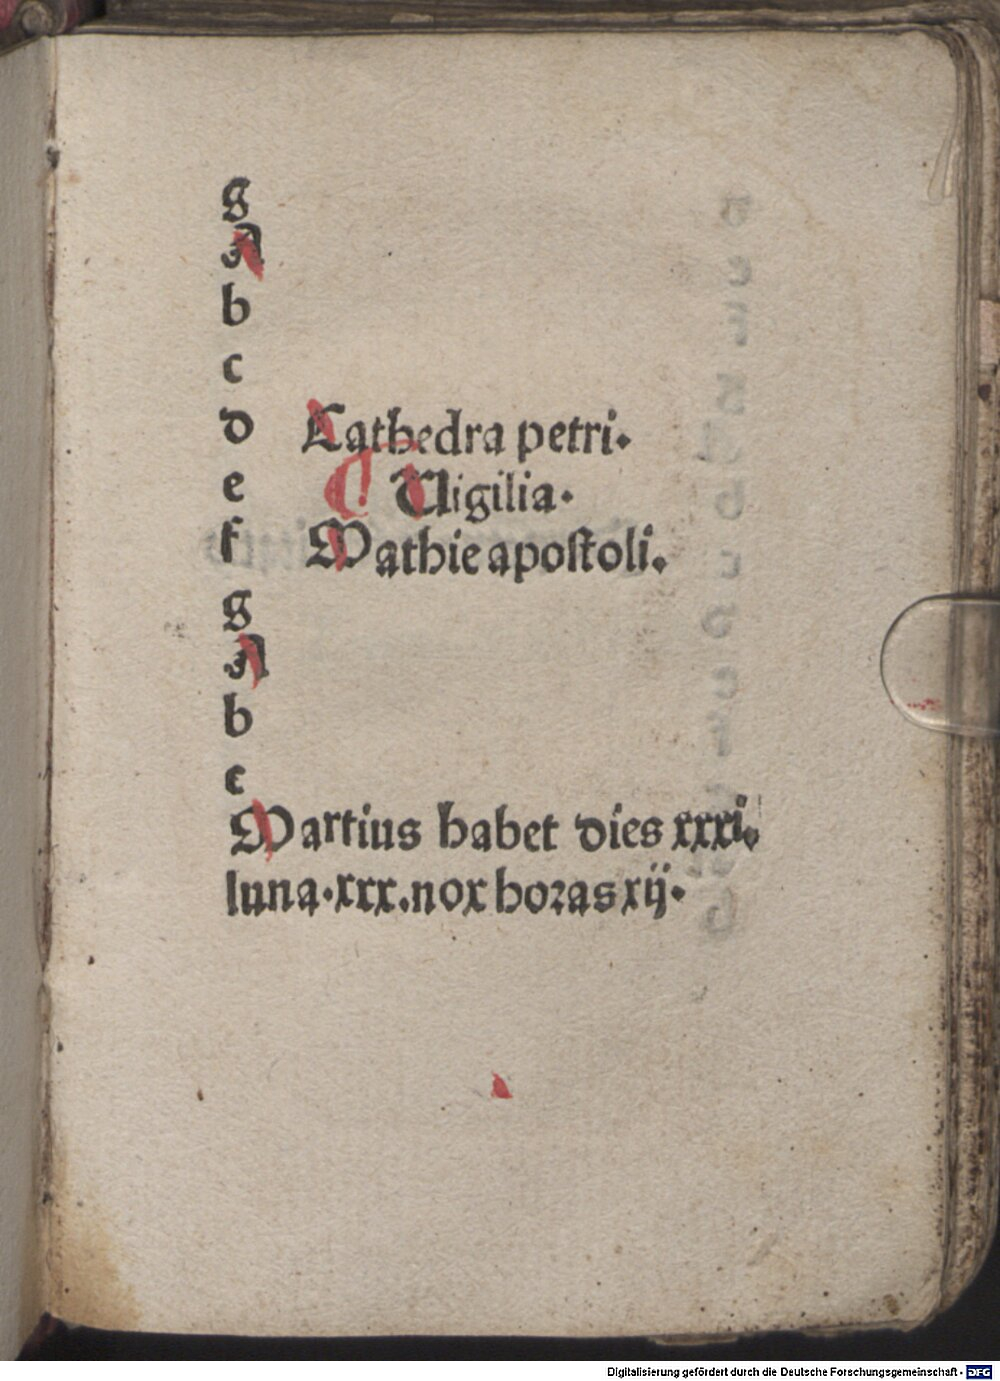 g
A
b
c
d Cathedra petri.
e Uigilia.
f Mathie apostoli.
g
A
b
c
Martius habet dies xxxi.
luna.xxx.nox horas xij.
Digitalisierung gefördert durch die Deutsche Forschungsgemeinschaft - DFG